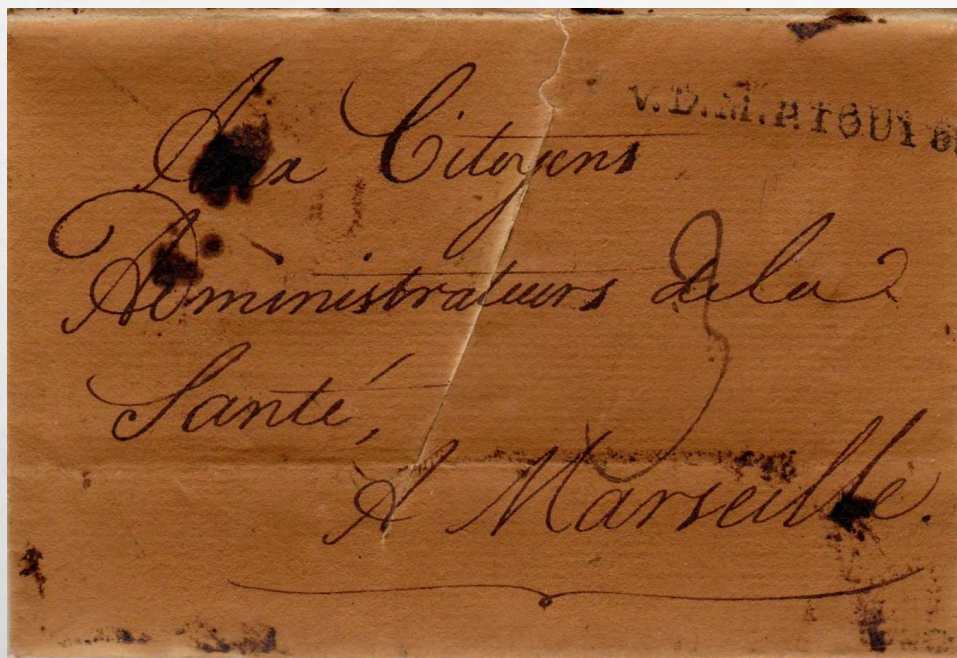 V.D.M.
Aux Citoyens
Administrateurs de la
Santé,
A Marseille.
3